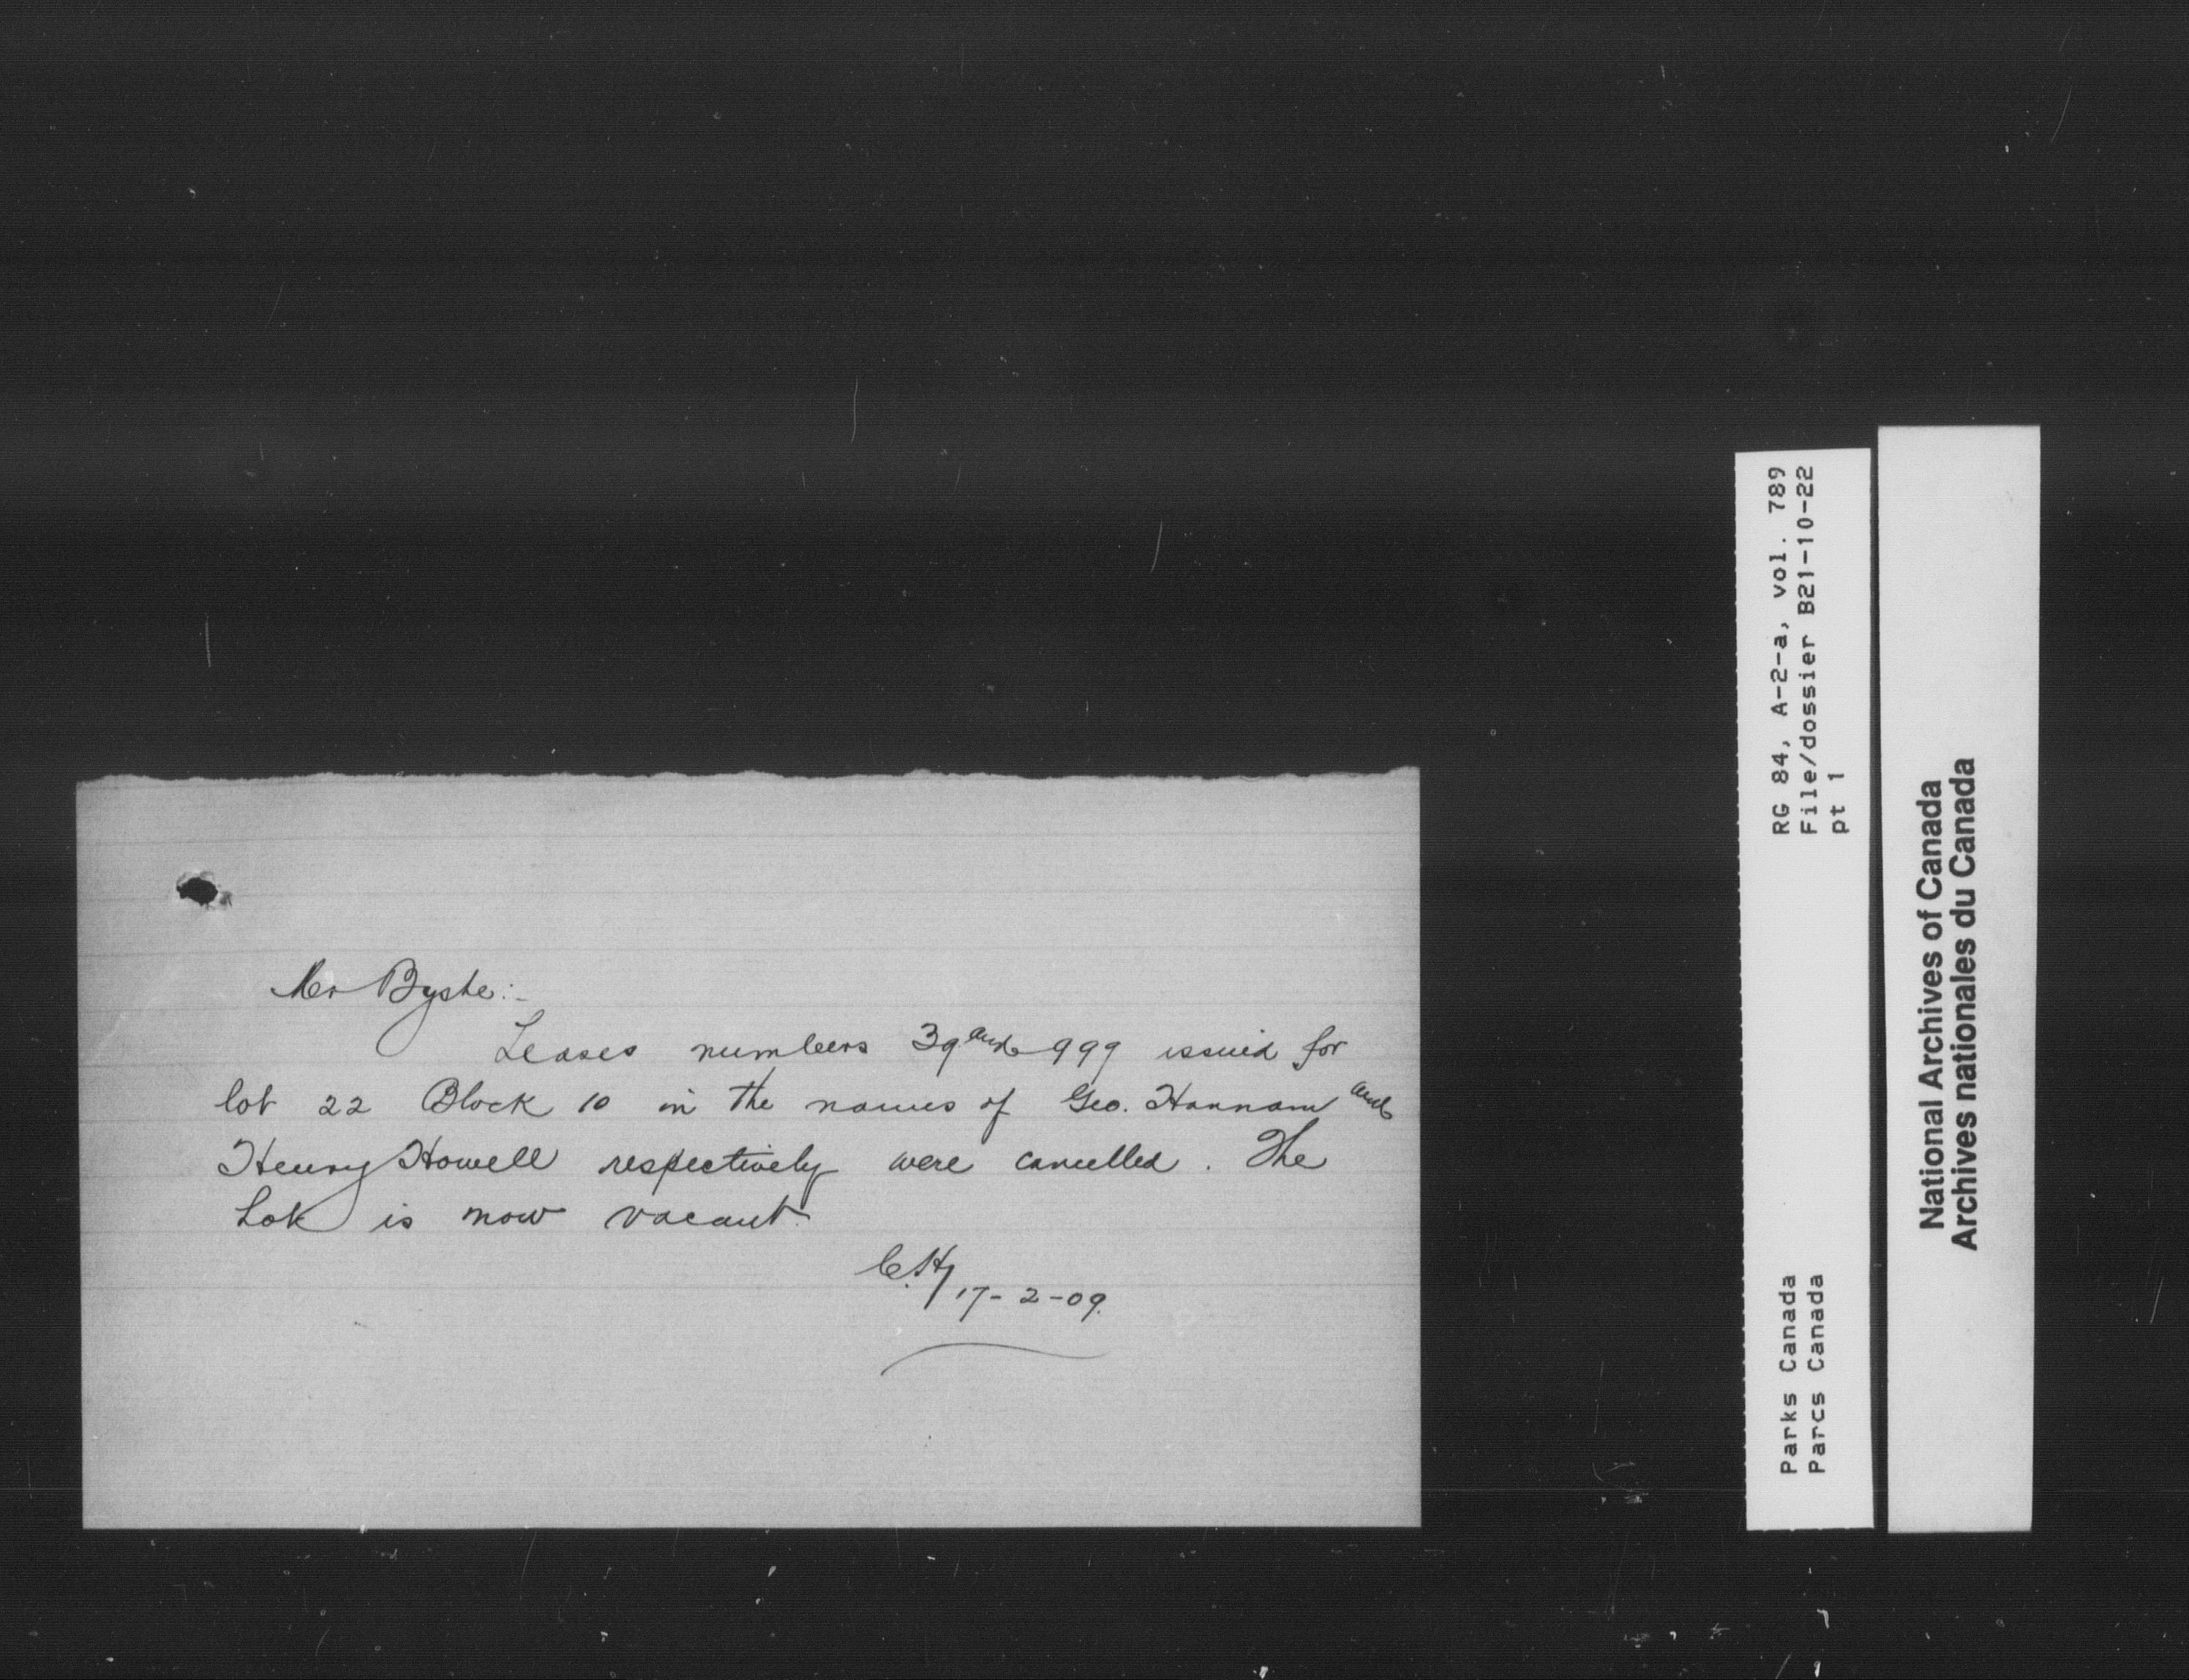 Mr Byshe:-
Leases numbers 39 and 999 issued for
lot 22 Block 10 in the names of Geo. Hannam and
Henry Howell respectively were cancelled. The
Lot is now vacant.
C.H/17-2-09.
RG 84, A-2-a, vol. 789
File/dossier B21-10-22
pt 1
Parks Canada
Parcs Canada
National Archives of Canada
Archives nationales du Canada